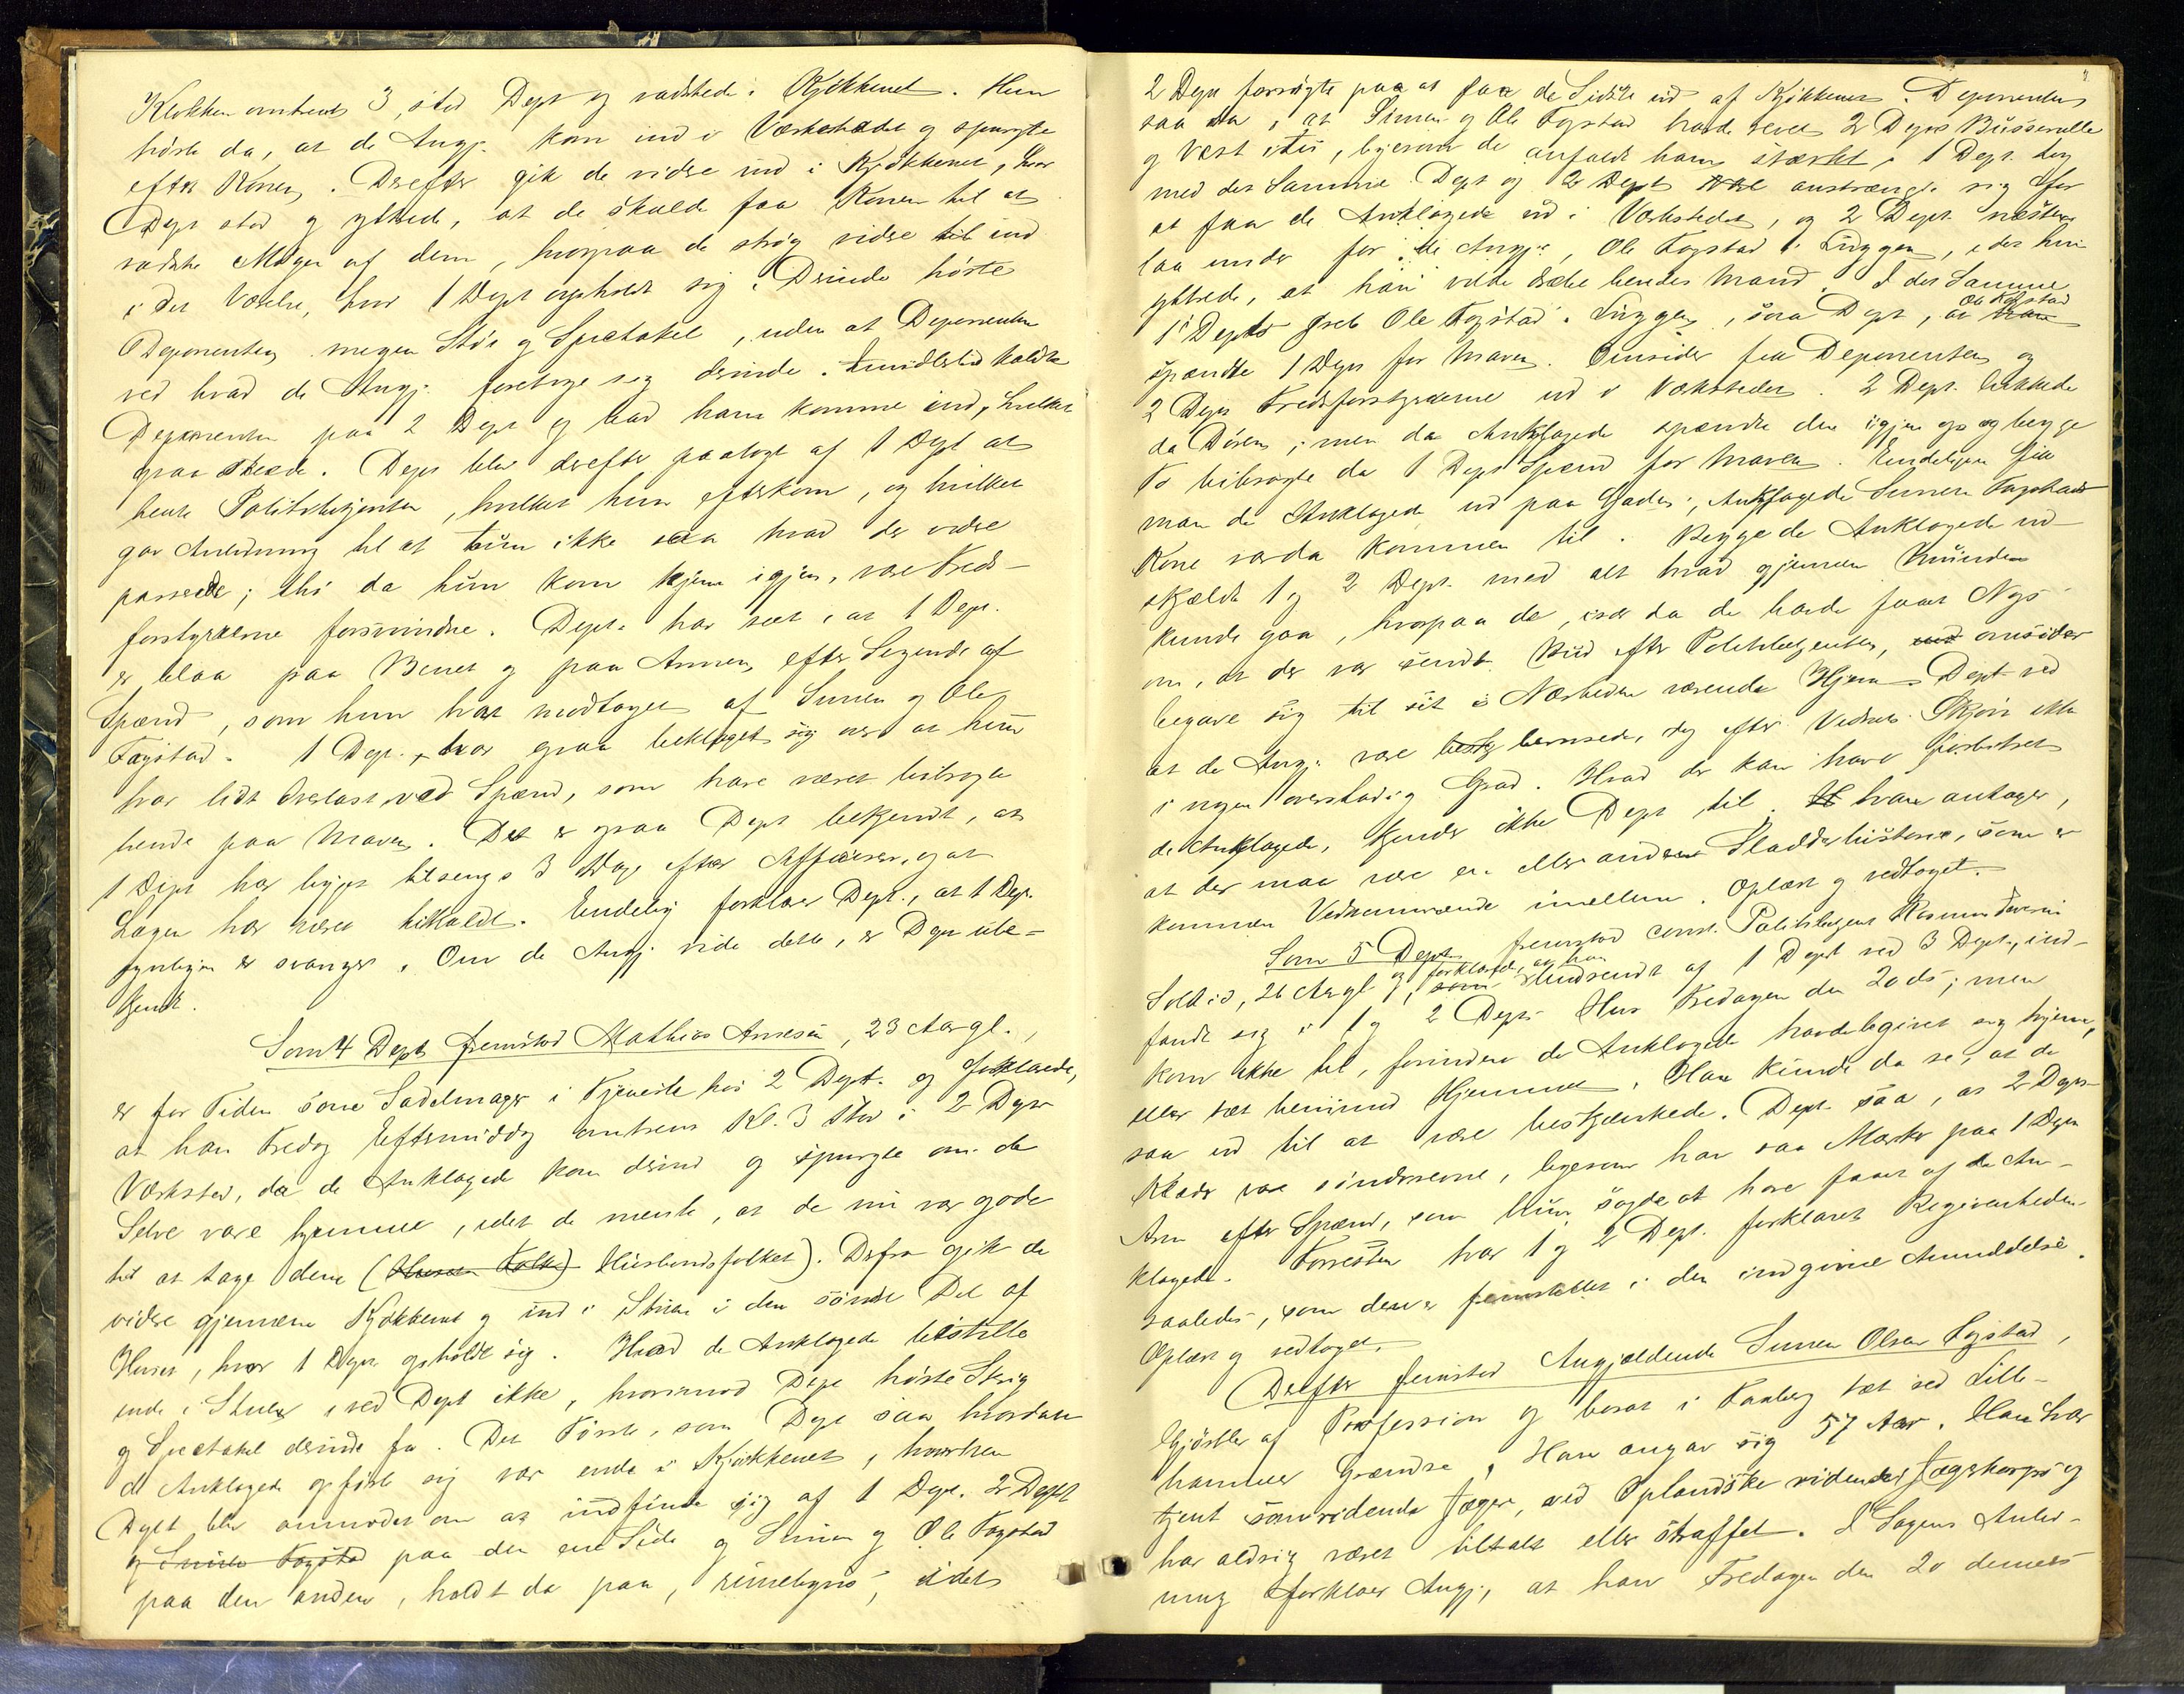 Klokken omtrent 3, stod Dept og vadskede i Kjøkkenet. Hun
hørte da, at de Angj. kom ind i Værkstedet og spurgte
efter Konen. Derefter gik de videre ind i Kjøkkenet, hvor
Dept stod og yttrede, at de skulde faa Konen til at
vadske Møgen af dem, hvorpaa de strøg videre til ind
i det Værelse, hvor 1 Dept opholdt sig. Derinde hørte
Deponenten megen Støi og Spektakel, uden at Deponenten
ved hvad de Angj. foretoge sig derinde. Imidlertid kaldte
Deponenten paa 2 Dept og bad ham komme ind, hvilket
ogsaa skede. Dept blev derefter paalagt af 1 Dept at
hente Politibetjenten, hvilket hun efterkom, og hvilket
gav Anledning til at hun ikke saa hvad der videre
passerede; thi da hun kom hjem igjen, vare Freds-
forstyrrerne forsvundne. Dept. har seet, at 1 Dept.
er blaa paa Benet og paa Armen, efter Sigende af
Spænd, som hun har modtaget af Simen og Ole
Fogstad. 1 Dept. har ogsaa beklaget sig over at hun
har lidt Overlast ved Spænd, som have været bibragte
hende paa Maven. Det er ogsaa Dept bekjendt, at
1 Dept har ligget tilsengs 3 Dage efter Affæren, og at
Lægen har været tilkaldt. Endelig forklarer Dept., at 1 Dept.
synligen er svanger. Om de Angj. vide dette, er Dept ube-
kjendt.
Som 4 Dept fremstod Mathias Arnesen, 23 Aar gl.,
er for Tiden som Sadelmager i Tjeneste hos 2 Dept. og forklarede,
at han Fredag Eftermiddag omtrent Kl. 3 stod i 2 Depts
Værksted, da de Anklagede kom derind og spurgte om de
Selve vare hjemme, idet de mente, at de nu var gode
til at tage dem (Husbondsfolket). Derfra gik de
videre gjennem Kjøkkenet og ind i Stuen i den søndre Del af
Huset, hvor 1 Dept. opholdt sig. Hvad de Anklagede bestilte
inde i Stuen, ved Dept ikke, hvorimod Dept hørte Skrig
og Spectakel derinde fra. Det Første, som Dept saa hvordan
de Anklagede opførte sig var inde i Kjøkkenet, hvorhen
Dept blev anmodet om at indfinde sig af 1 Dept. 2 Dept
og Simen Fogstad paa den ene Side og Simen og Ole Fogstad
paa den anden, holdt da paa, rimeligvis, idet
2 Dept forsøgte paa at faa de Sidste ud af Kjøkkenet. Deponenten
saa da, at Simen og Ole Fogstad havde revet 2 Depts Busserulle
og Vest itu, ligesom de anfaldt ham stærkt, 1 Dept. tog
med det Samme Dept og 2 Dept anstrængte sig for
at faa de Anklagede ud i Værkstedet, og 2 Dept. næsten
laa under for de Angj., Ole Fogstad i Luggen, idet hun
yttrede, at han vilde dræbe hendes Mand. I det Samme
1 Dept greb Ole Fogstad i Luggen, saa Dept, at Ole Fogstad
spændte 1 Dept for Maven. Omsider fik Deponenten og
2 Dept Fredsforstyrrerne ud i Værkstedet. 2 Dept. lukkede
da Døren; men da Anklagede spændte den igjen op og begge
To bibragte da 1 Dept Spænd for Maven. Endeligen fik
man de Anklagede ud paa Gaden; Anklagede Simen Fogstads
Kone var da kommen til. Begge de Anklagede ud-
skjældte 1 og 2 Dept. med alt hvad gjennem Munden
kunde gaa, hvorpaa de, især da de havde faaet Nys
om, at der var sendt Bud efter Politibetjenten, omsider
begave sig til sit i Nærheden værende Hjem. Dept ved
at de Angj. vare berusede, dog efter Vedkom. Skjøn ikke
i nogen overstadig Grad. Hvad der kan have forbitret
de Anklagede, kjender ikke Dept til. han antager,
at der maa være en eller anden Sladderhistorie, som er
kommen Vedkommende imellem. Oplæst og vedtaget.
Som 5 Dept. fremstod const. Politibetjent Rasmus Iversen
Solli, 26 Aar gl og forklarede, at han, hidsendt af 1 Dept ved 3 Dept., ind-
fandt sig i 1 og 2 Depts Hus Fredagen den 20 ds; men
kom ikke til, forinden de Anklagede havde begivet sig hjem,
eller tæt henimod Hjemmet. Han kunde da se, at de
saa ud til at være beskjænkede. Dept. saa, at 2 Depts
Klæder vare sønderrevne, ligesom han saa Mærker paa 1 Depts
Arm efter Spænd, som hun sagde at have faaet af de An-
klagede. Forresten har 1 og 2 Dept. forklaret Begivenheden
saaledes, som den er fremstillet i den indgivne Anmeldelse.
Oplæst og vedtaget.
Derefter fremstod Angjældende Simen Olsen Fogstad,
Gjørtler af Profession og bosat i Faaberg tæt ved Lille-
hammer Grændse. Han angav sig 57 Aar. Han har
tjent som ridende Jæger, ved Oplandske ridende Jægerkorps og
har aldrig været tiltalt eller straffet. I Sagens Anled-
ning forklarer Angj., at han Fredagen den 20 dennes